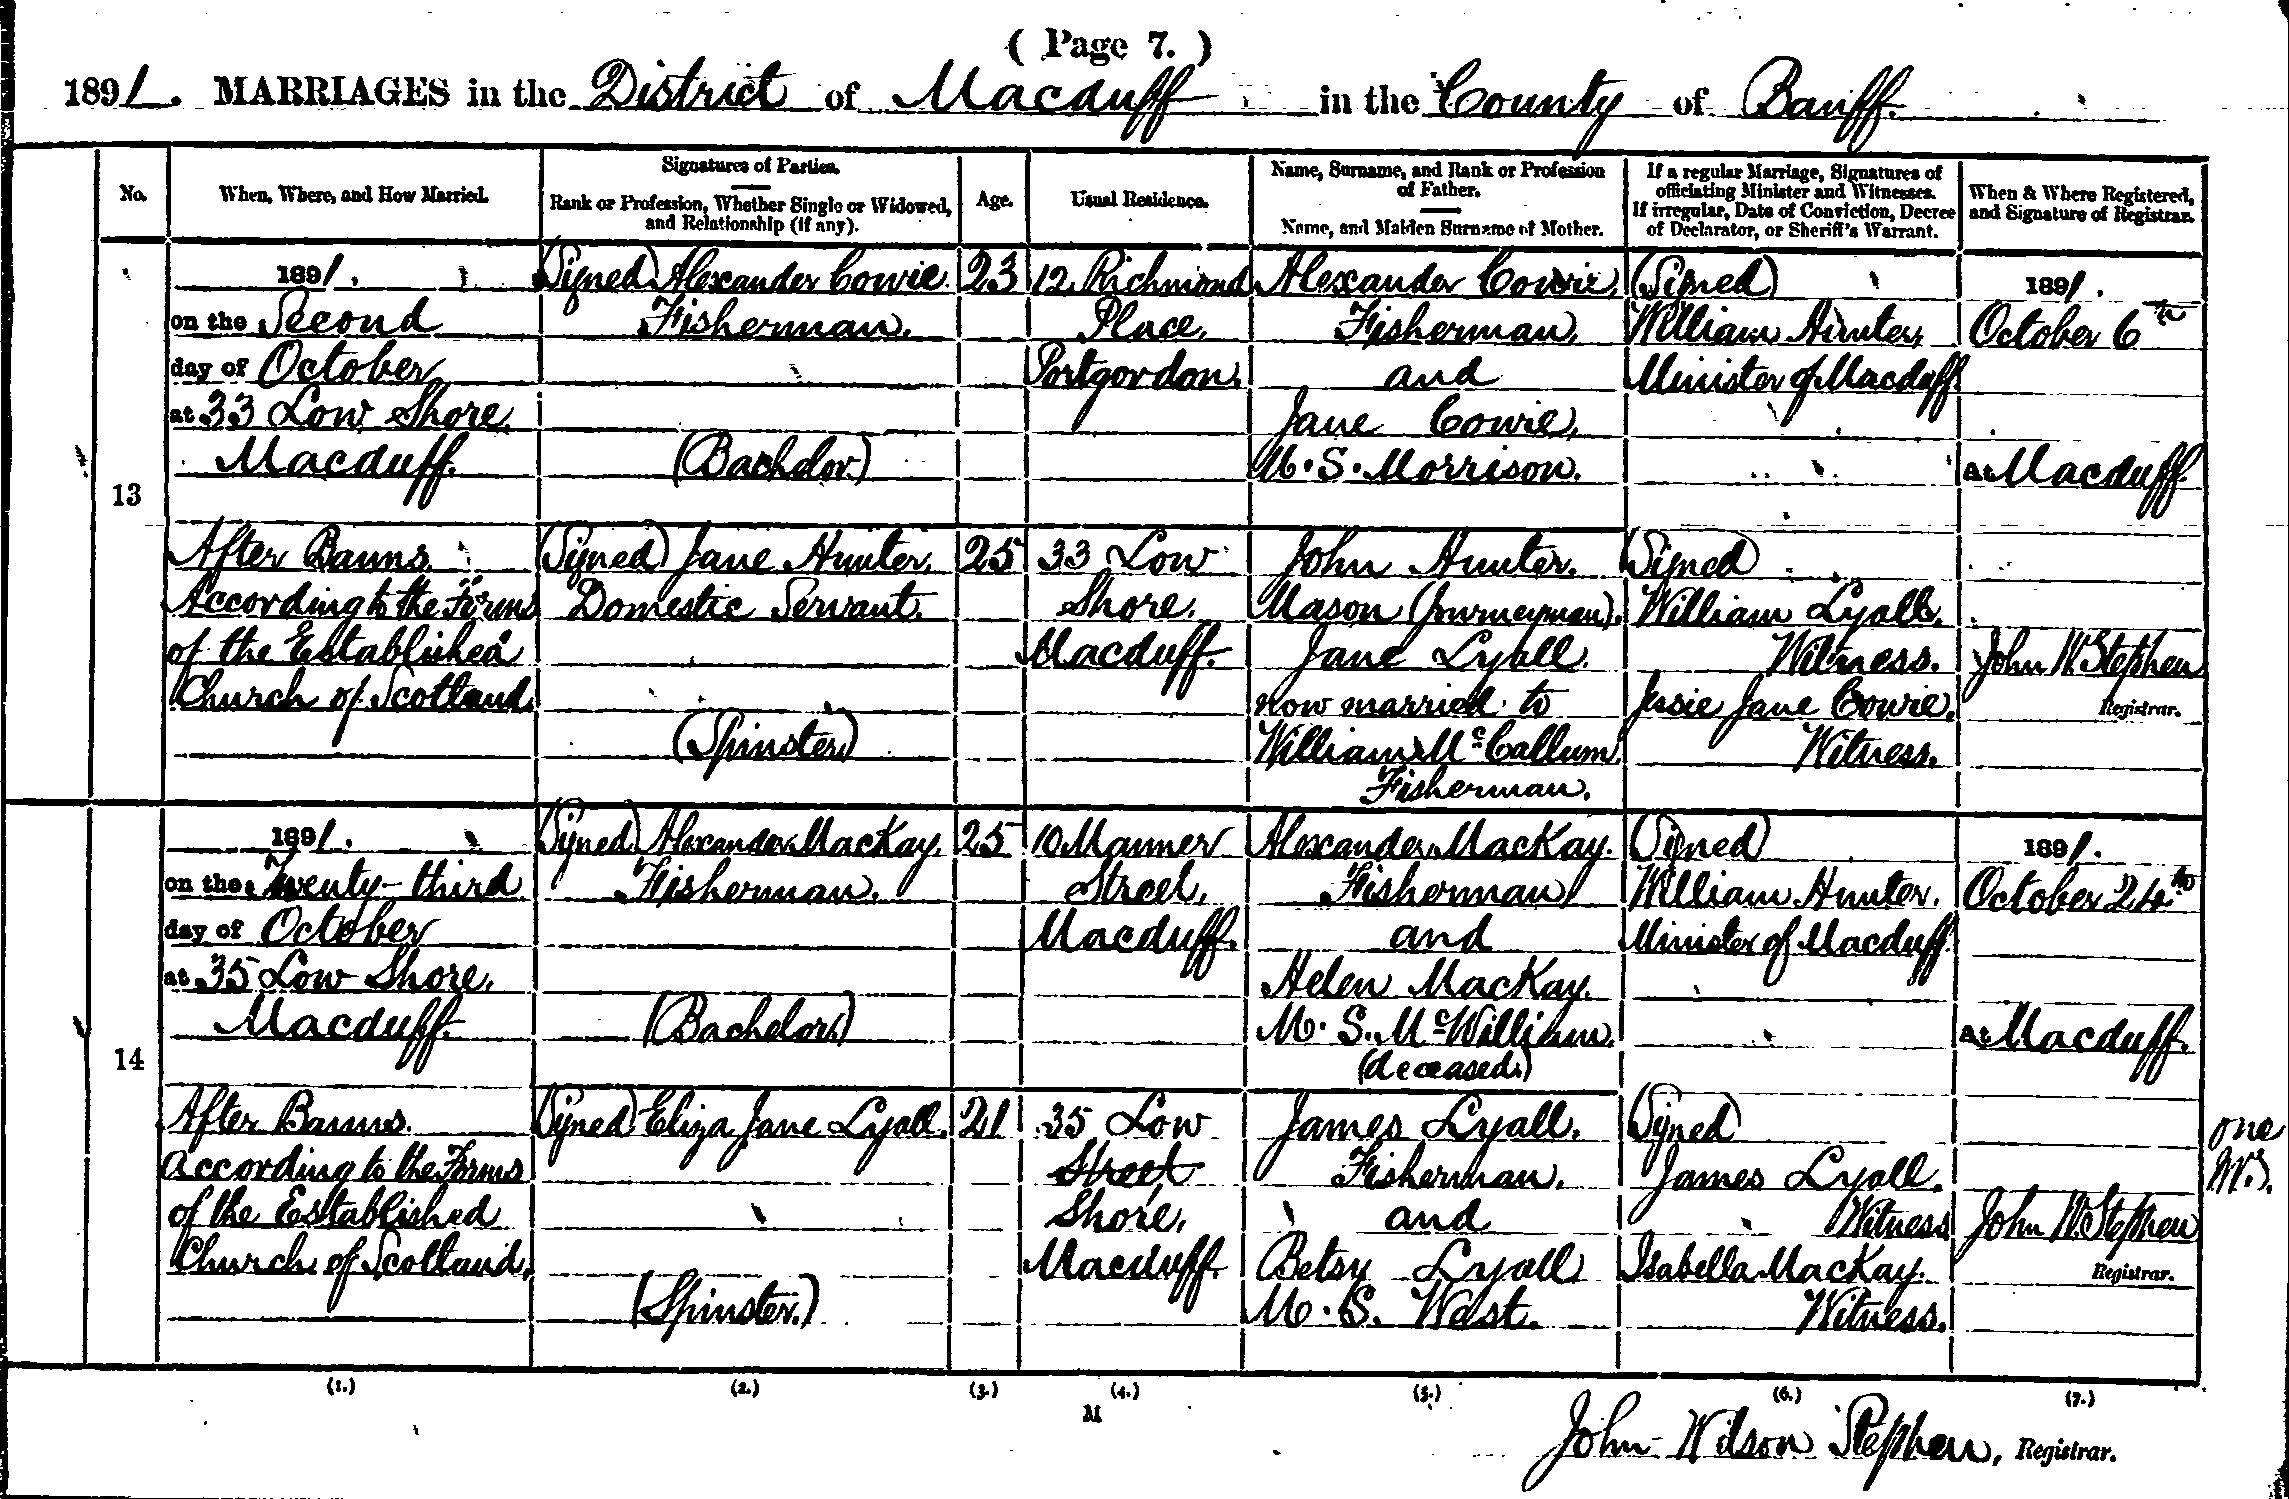 ( Page 7. )
1891. MARRIAGES in the District of Macduff in the County of Banff.
No.
When, Where, and How Married.
Signatures of Parties.
Rank or Profession, Whether Single or Widowed,
and Relationship (if any).
Age.
Usual Residence.
Name, Surname, and Rank or Profession
of Father.
Name, and Maiden Surname of Mother.
If a regular Marriage, Signatures of
officiating Minister and Witnesses.
If irregular, Date of Conviction, Decree
of Declarator, or Sheriff's Warrant.
When & Where Registered,
and Signature of Registrar.
13
1891.
on the Second
day of October
at 33 Low Shore,
Macduff.
After Banns
According to the Forms
of the Established
Church of Scotland.
(Signed) Alexander Cowie
Fisherman.
(Bachelor.)
23
12 Richmond
Place,
Portgordon.
Alexander Cowie,
Fisherman,
and
Jane Cowie,
M.S. Morrison.
(Signed)
William Hunter,
Minister of Macduff.
1891.
October 6th
at Macduff.
(Signed) Jane Hunter,
Domestic Servant.
(Spinster)
25
33 Low
Shore.
Macduff.
John Hunter.
Mason (Journeyman).
Jane Lyall.
now married to
William McCallum
Fisherman.
(Signed)
William Lyall.
Witness.
Jessie Jane Cowie.
Witness.
John W Stephen
Registrar.
14
1891.
on the Twenty-third
day of October
at 35 Low Shore,
Macduff.
After Banns.
According to the Forms
of the Established
Church of Scotland.
(Signed) Alexander MacKay.
Fisherman.
(Bachelor.)
25
10 Manner
Street,
Macduff.
Alexander MacKay.
Fisherman
and
Helen MacKay.
M.S. McWilliam.
(deceased.)
(Signed)
William Hunter.
Minister of Macduff
1891.
October 24th
at Macduff.
(Signed) Eliza Jane Lyall.
(Spinster.)
21
35 Low
Street
Shore,
Macduff.
James Lyall.
Fisherman.
and
Betsy Lyall
M.S. West.
(Signed)
James Lyall.
Witness
Isabella MacKay.
Witness.
John W Stephen
Registrar.
one
(1.)
(2.)
(3.)
(4.)
(5.)
(6.)
(7.)
M
John Wilson Stephen, Registrar.